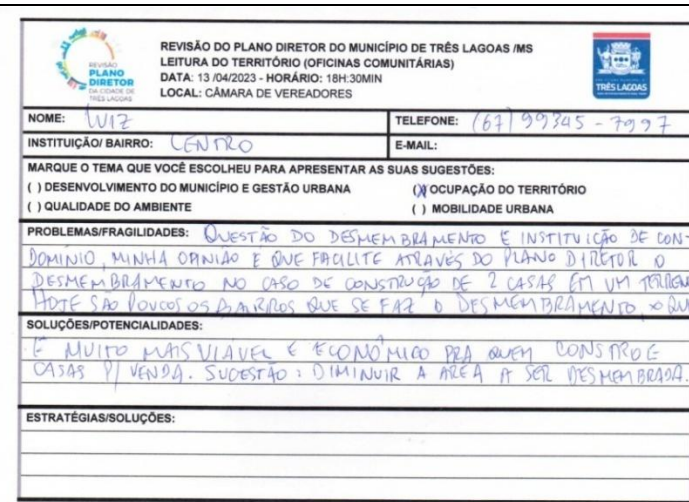 REVISÃO DO PLANO DIRETOR DO MUNICÍPIO DE TRÊS LAGOAS /MS
LEITURA DO TERRITÓRIO (OFICINAS COMUNITÁRIAS)
DATA: 13 /04/2023 - HORÁRIO: 18H:30MIN
LOCAL: CÂMARA DE VEREADORES
REVISÃO
PLANO
DIRETOR
DA CIDADE DE
TRÊS LAGOAS
TRÊS LAGOAS
NOME: LUIZ
TELEFONE: (67) 99345 - 7997
INSTITUIÇÃO/ BAIRRO: CENTRO
E-MAIL:
MARQUE O TEMA QUE VOCÊ ESCOLHEU PARA APRESENTAR AS SUAS SUGESTÕES:
( ) DESENVOLVIMENTO DO MUNICÍPIO E GESTÃO URBANA
(X) OCUPAÇÃO DO TERRITÓRIO
( ) QUALIDADE DO AMBIENTE
( ) MOBILIDADE URBANA
PROBLEMAS/FRAGILIDADES: QUESTÃO DO DESMEMBRAMENTO E INSTITUIÇÃO DE CON-
DOMÍNIO, MINHA OPNIÃO E QUE FACILITE ATRAVÉS DO PLANO DIRETOR O
DESMEMBRAMENTO NO CASO DE CONSTRUÇÃO DE 2 CASAS EM UM TERREN
HOJE SÃO POUCOS OS BAIRROS QUE SE FAZ O DESMEMBRAMENTO, O QU
SOLUÇÕES/POTENCIALIDADES:
É MUITO MAIS VIÁVEL E ECONÔMICO PRA QUEM CONSTROE
CASAS P/ VENDA. SUGESTÃO: DIMINUIR A AREA A SER DESMEMBRADA.
ESTRATÉGIAS/SOLUÇÕES: